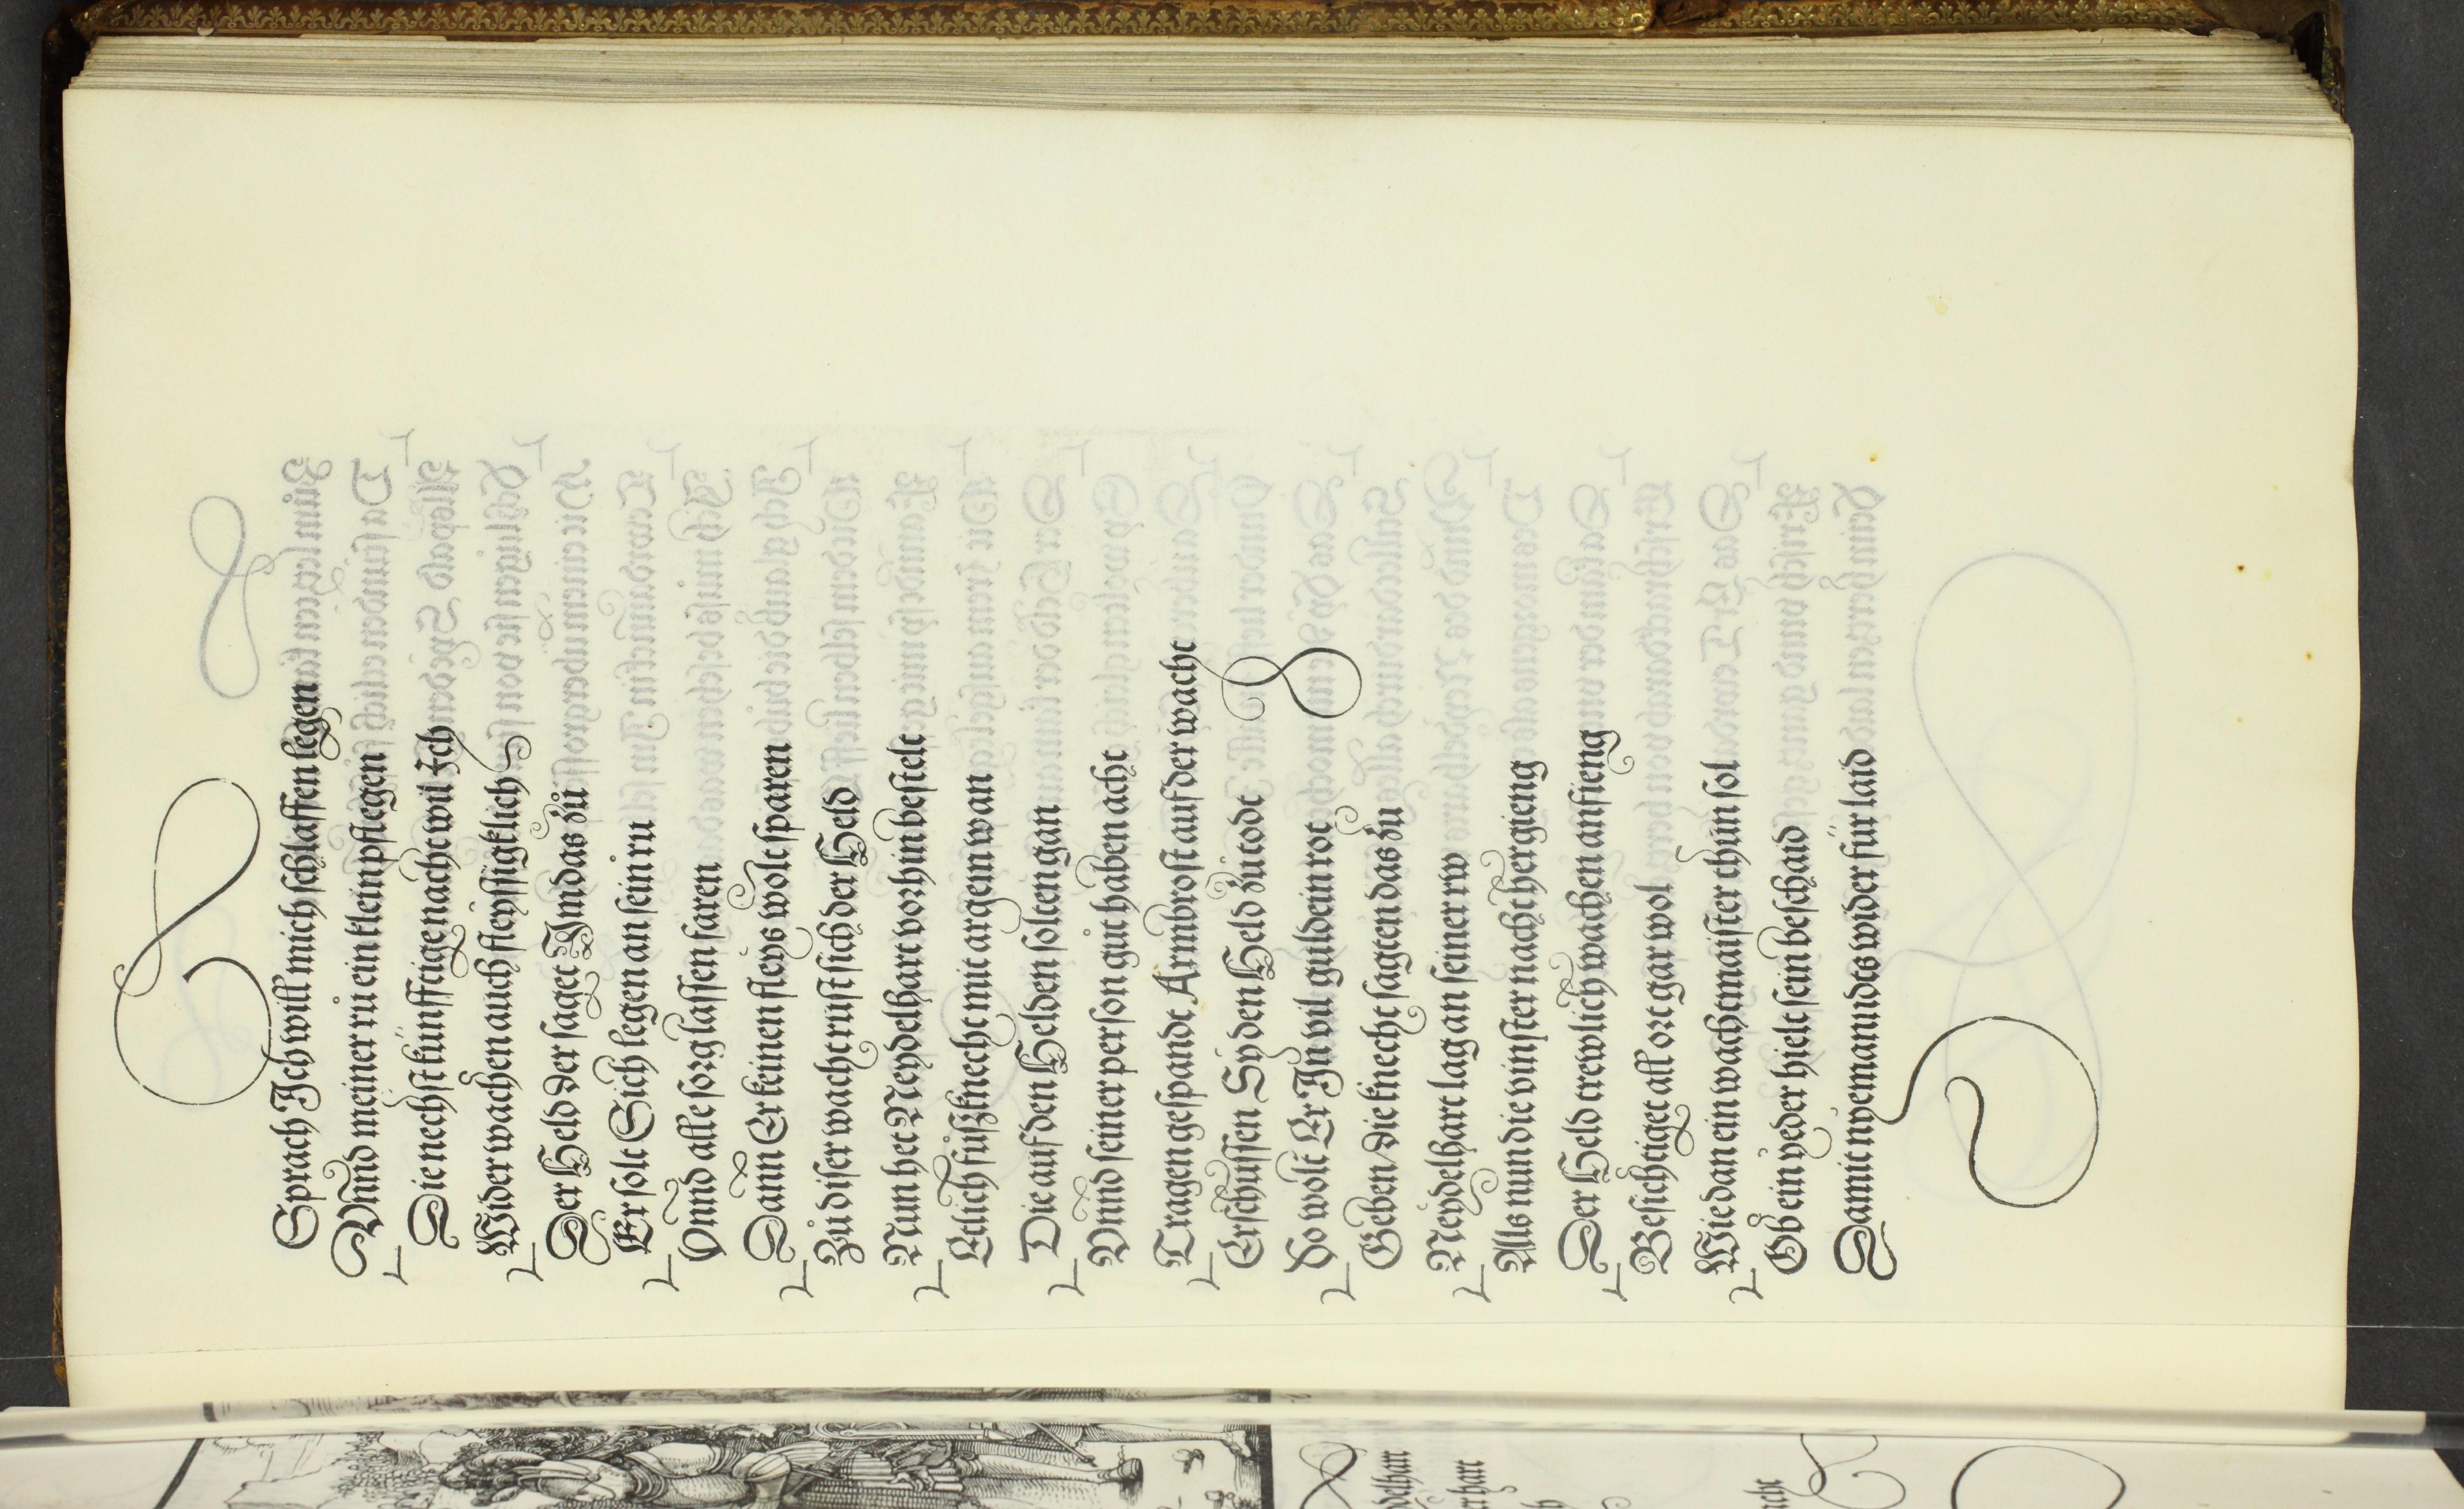 Sprach Ich will mich schlaffen legen
Vnnd meiner rů ein klein pflegen
Die nechst künfftige nacht wil Ich
Wider wachen auch fleyssigklich
Der Held der saget Im das zů
Er solt Sich legen an sein ru
Vnnd alle sorg lassen faren
Dann Er keinen fleys wolt sparen
Zů diser wacht rust sich der Held
Nun het Neydelhart vorhin bestelt
Etlich fůßknecht mit argem wan
Die auf den Helden solten gan
Vnnd seiner person gůt haben acht
Tragen gespandt Armbrost auf der wacht
Erschussen Sy den Held zů todt
So wolt Er In vil guldein rot
Geben die knecht sagten das zů
Neydelhart lag an seiner rw
Als nun die vinster nacht hergieng
Der Held trewlich wachen anfieng
Besichtiget all ort gar wol
Wie dan ein wachtmaister thůn sol
Ob ein yeder hielt sein beschaid
Damit nyemanndts widerfür laid
delhart